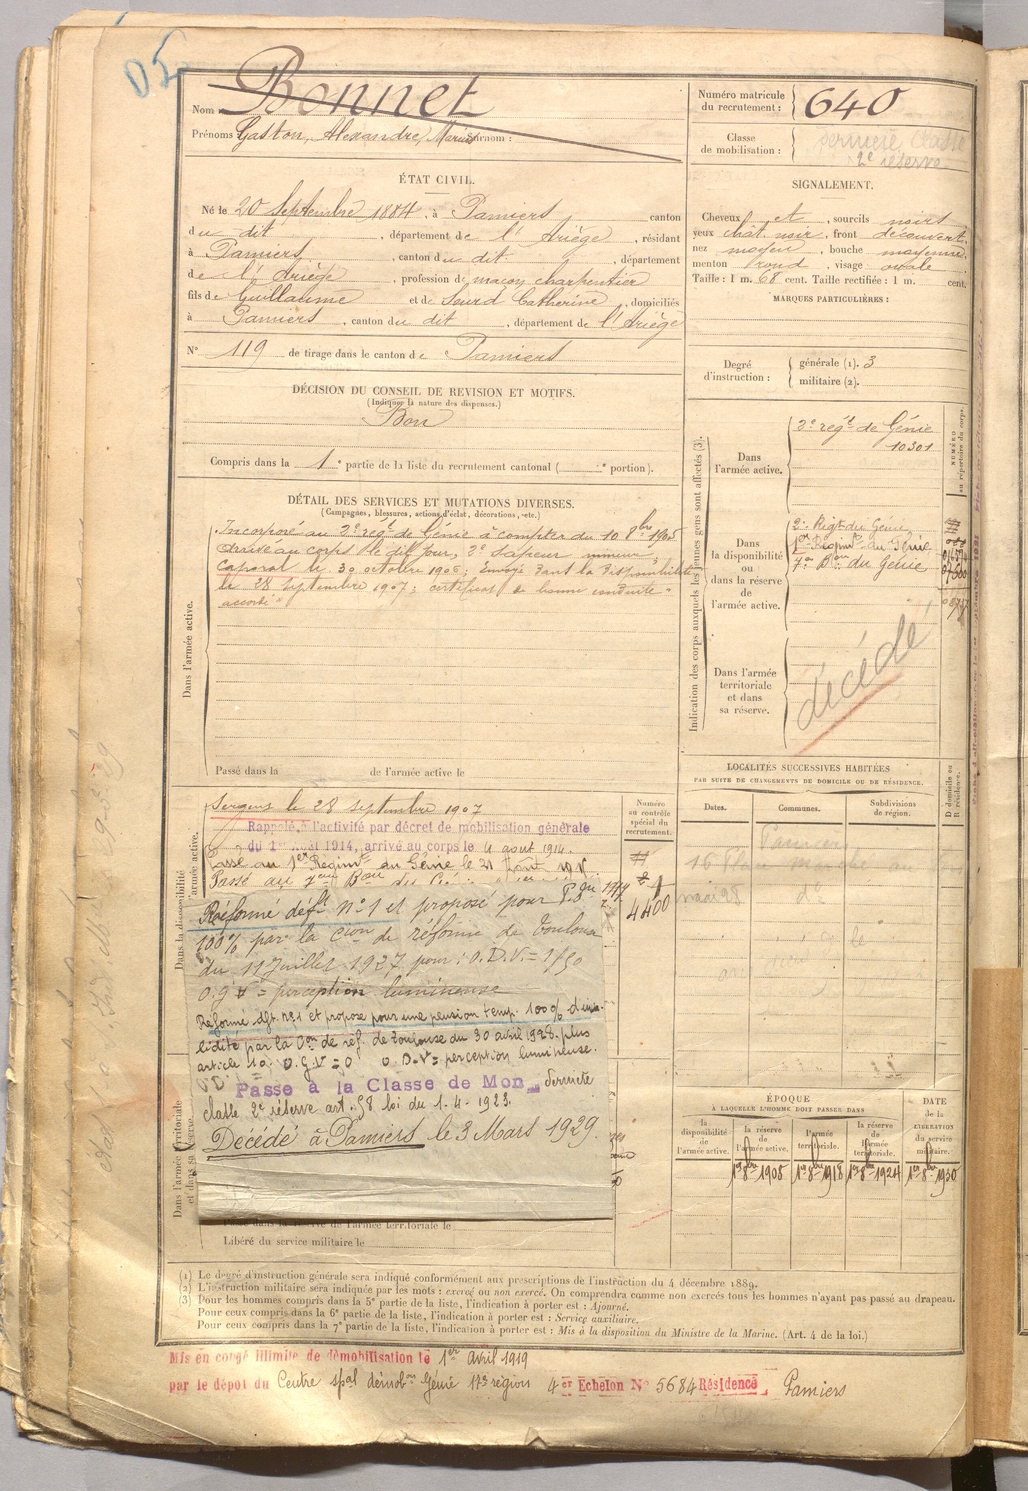 Nom : Bonnet
Prénoms Gaston, Alexandre, Marius Surnom :
Numéro matricule
du recrutement : 640
Classe
de mobilisation : dernière classe
2e réserve
ÉTAT CIVIL.
Né le 20 Septembre 1884, à Pamiers canton
du dit, département de l'Ariège, résidant
à Pamiers, canton du dit, département
de l'Ariège, profession de maçon charpentier
fils de Guillaume et de Sourd Catherine, domiciliés
à Pamiers, canton du dit, département de l'Ariège
N° 119 de tirage dans le canton de Pamiers
SIGNALEMENT.
Cheveux et, sourcils noirs
yeux chât. noir, front découvert,
nez moyen, bouche moyenne,
menton rond, visage ovale
Taille : 1 m. 68 cent. Taille rectifiée : 1 m. cent.
MARQUES PARTICULIÈRES :
Degré
d'instruction :
générale (1). 3
militaire (2).
DÉCISION DU CONSEIL DE REVISION ET MOTIFS.
(Indiquer la nature des dispenses.)
Bon
Compris dans la 1e partie de la liste du recrutement cantonal ( e portion).
DÉTAIL DES SERVICES ET MUTATIONS DIVERSES.
(Campagnes, blessures, actions d'éclat, décorations, etc.)
Dans l'armée active.
Incorporé au 2e régt de Génie à compter du 10 8bre 1905
arrivé au corps le dit jour, 2e Sapeur mineur
Caporal le 30 octobre 1906; Envoyé dans la disponibilité
le 28 Septembre 1907; certificat de bonne conduite
"accordé"
Passé dans la de l'armée active le
Indication des corps auxquels les jeunes gens sont affectés (3).
NUMÉRO
au répertoire du corps.
Dans
l'armée active.
2e régt de Génie
10301
Dans
la disponibilité
ou
dans la réserve
de
l'armée active.
2e Régt du Génie
1er Régimt du Génie
7e Bon du Génie
Dans l'armée
territoriale
et dans
sa réserve.
décédé
LOCALITÉS SUCCESSIVES HABITÉES
PAR SUITE DE CHANGEMENTS DE DOMICILE OU DE RÉSIDENCE.
Dates. Communes. Subdivisions
de région.
D domicile ou
R résidence.
Pamiers
Numéro
au contrôle
spécial du
recrutement.
4400
Sergent le 28 septembre 1907
Rappelé à l'activité par décret de mobilisation générale
du 1er Août 1914, arrivé au corps le 4 août 1914.
Passé au 1er Régimt du Génie le 21 Août 1915
Passé au 7eme Bon du Génie
Réformé déft n°1 et proposé pour
100% par la Cion de réforme de Toulouse
du 11 Juillet 1927 pour : O.D.V. = 1/50
O.g V = perception lumineuse
Réformé dft. n°1 et proposé pour une pension temp. 100% d'inva-
lidité par la Con de réf. de Toulouse du 30 avril 1928. plus
article 10. O.G.V = 0 O.D.V = perception lumineuse.
Passé à la Classe de Mon dernière
classe 2e réserve art. 58 loi du 1-4-1923.
Décédé à Pamiers le 3 Mars 1929.
Passé dans la réserve de l'armée territoriale le
Libéré du service militaire le
ÉPOQUE
À LAQUELLE L'HOMME DOIT PASSER DANS
DATE
de la
LIBÉRATION
du service
militaire.
la
disponibilité
de
l'armée active.
la réserve
de
l'armée active.
l'armée
territoriale.
la réserve
de
l'armée
territoriale.
1er 8bre 1908 1er 8bre 1918 1er 8bre 1924 1er 8bre 1930
(1) Le degré d'instruction générale sera indiqué conformément aux prescriptions de l'instruction du 4 décembre 1889.
(2) L'instruction militaire sera indiquée par les mots : exercé ou non exercé. On comprendra comme non exercés tous les hommes n'ayant pas passé au drapeau.
(3) Pour les hommes compris dans la 5e partie de la liste, l'indication à porter est : Ajourné.
Pour ceux compris dans la 6e partie de la liste, l'indication à porter est : Service auxiliaire.
Pour ceux compris dans la 7e partie de la liste, l'indication à porter est : Mis à la disposition du Ministre de la Marine. (Art. 4 de la loi.)
Mis en congé illimité de démobilisation le 1er avril 1919
par le dépôt du Centre spal démobon Génie 17e région 4 er Echelon N° 5684 Résidence Pamiers